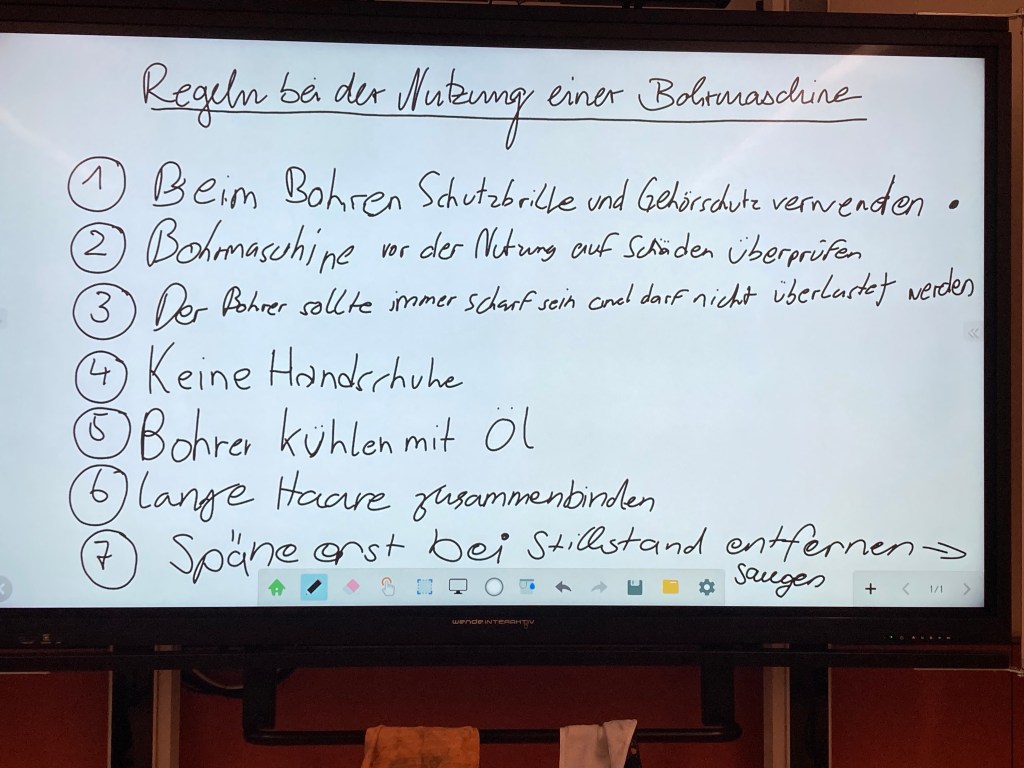 Regeln bei der Nutzung einer Bohrmaschine
1 Beim Bohren Schutzbrille und Gehörschutz verwenden .
2 Bohrmaschine vor der Nutzung auf Schäden überprüfen
3 Der Bohrer sollte immer scharf sein und darf nicht überlastet werden
4 Keine Handschuhe
5 Bohrer kühlen mit Öl
6 lange Haare zusammenbinden
7 Späne erst bei Stillstand entfernen →
saugen
1/1
wende INTERAKTIV